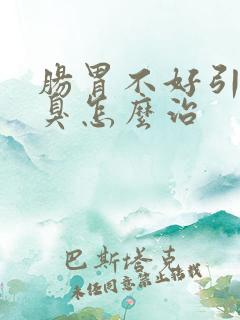 腸胃不好引
臭怎麼治
巴斯塔克
未经同意禁止转载